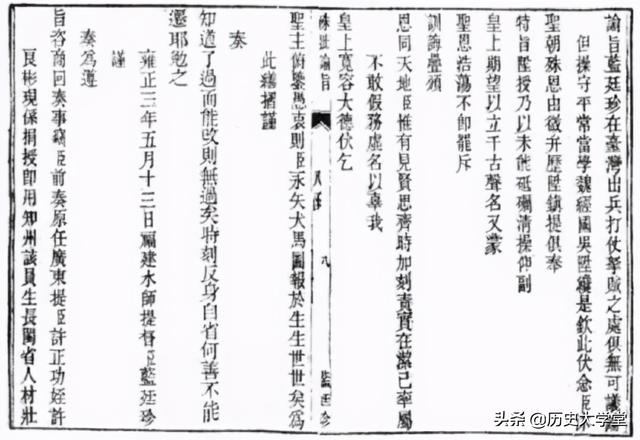 諭旨藍廷珍在臺灣出兵打仗拏賊之處俱無可議
但操守平常當學魏經國吳陞纔是欽此伏念臣
聖朝殊恩由微弁歷陞鎮提俱奉
特旨陞授乃以未能砥礪清操仰副
皇上期望以立千古聲名又蒙
聖恩浩蕩不卽罷斥
訓誨疊頒
恩同天地臣惟有見賢思齊時加刻責實在潔己率屬
不敢假務虛名以辜我
皇上寬容大德伏乞
硃批諭旨 九 藍廷珍
聖主俯鑒愚衷則臣永矢犬馬圖報於生生世世矣為
此繕摺謹
奏
知道了過而能改則無過矣時刻反身自省何善不能
遷耶勉之
雍正三年五月十三日福建水師提督臣藍廷珍
謹
奏為遵
旨咨商回奏事竊臣前奏原任廣東提臣許正功姪許
良彬現係捐授即用知州該員生長閩省人材壯
头条 @历史大学堂